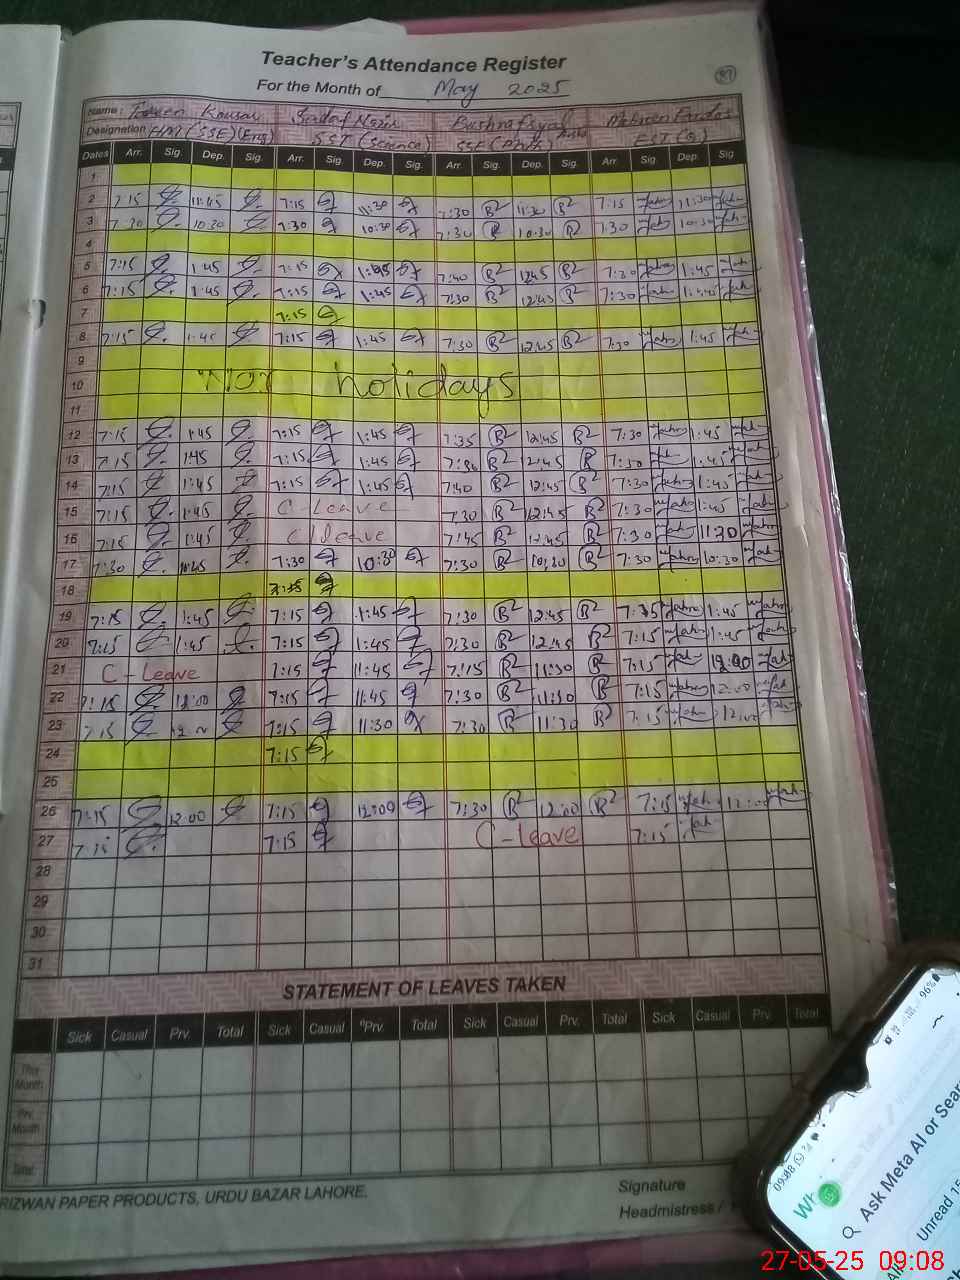 Teacher's Attendance Register
87
For the Month of May 2025
Name: Kousar Sadaf Nazir Bushra
Designation HM (SSE) (Eng) SST (Science) SSE (Phys) EST
Dates Arr. Sig. Dep. Sig. Arr. Sig. Dep. Sig. Arr. Sig. Dep. Sig. Arr Sig. Dep. Sig
1
2 7:15 11:45 7:15 11:30 7:30 11:30 7:15 11:30
3 7:30 10:30 7:30 10:30 7:30 10:30 7:30 10:30
4
5 7:15 1:45 7:15 1:45 7:40 12:45 7:30 1:45
6 7:15 1:45 7:15 1:45 7:30 12:45 7:30
7 7:15
8 7:15 1:45 7:15 1:45 7:30 12:45 7:30 1:45
9
10 holidays
11
12 7:15 1:45 7:15 1:45 7:35 12:45 7:30 1:45
13 7:15 1:45 7:15 1:45 12:45 7:30 1:45
14 7:15 1:45 7:15 1:45 7:40 12:45 7:30 1:45
15 7:15 1:45 C-Leave 7:30 12:45 7:30 1:45
16 7:15 1:45 C leave 7:45 12:45 7:30 11:30
17 7:30 10:45 7:30 10:30 7:30 10:30 7:30 10:30
18 7:15
19 7:15 1:45 7:15 1:45 7:30 12:45 1:45
20 7:15 1:45 7:15 1:45 7:30 12:45 7:15 1:45
21 C-Leave 7:15 11:45 7:15 11:30 7:15 12:00
22 7:15 12:00 7:15 11:45 7:30 11:30 7:15 12:00
23 7:15 7:15 11:30 7:30 11:30 7:15 12:00
24 7:15
25
26 7:15 12:00 7:15 12:00 7:30 12:00 7:15
27 7:15 7:15 C-leave 7:15
28
29
30
31
STATEMENT OF LEAVES TAKEN
Sick Casual Prv. Total Sick Casual Prv. Total Sick Casual Prv. Total Sick Casual Prv. Total
This Month
Prv. Month
Total
RIZWAN PAPER PRODUCTS, URDU BAZAR LAHORE.
Signature
Headmistress /
96%
09:08
Ask Meta AI or Sear
Unread 15
27-05-25 09:08